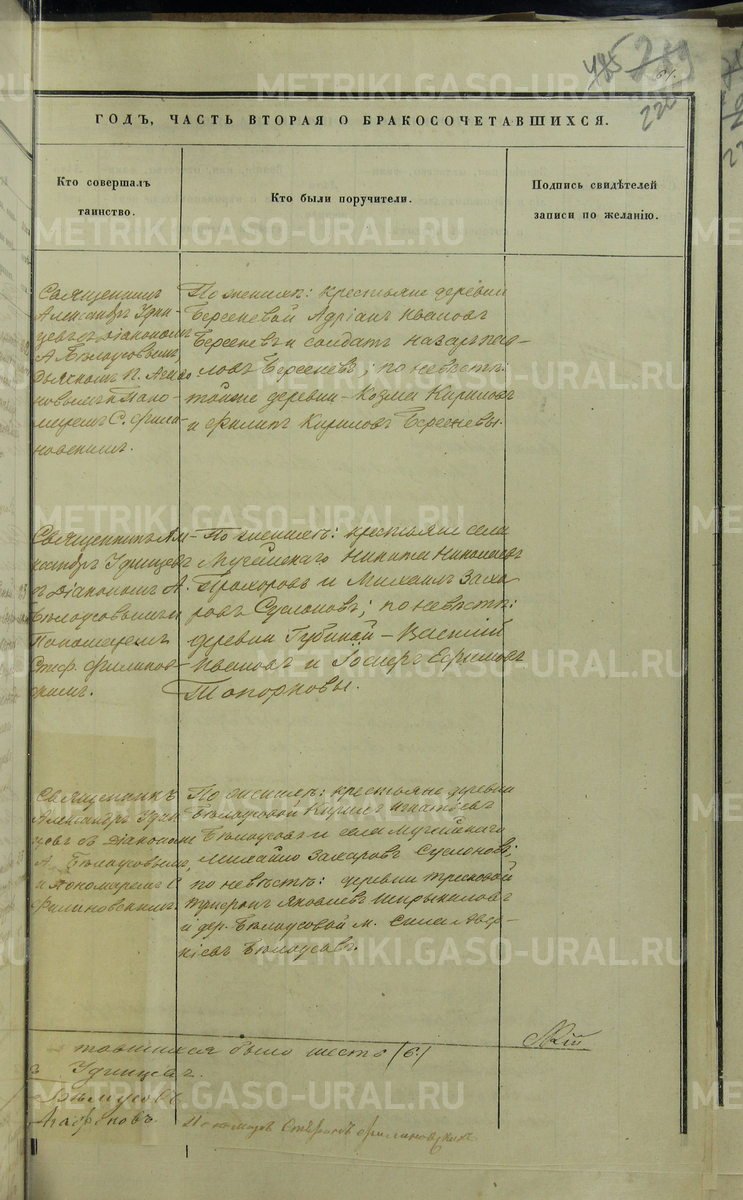 485 219
61.
226
ГОДЪ, ЧАСТЬ ВТОРАЯ О БРАКОСОЧЕТАВШИХСЯ.
Кто совершалъ
таинство.
Кто были поручители.
Подпись свидѣтелей
записи по желанію.
Священникъ
Александръ Удин-
цевъ съ діакономъ
А. Бѣлоусовымъ,
дьячкомъ П. Агафо-
новымъ и Поно-
маремъ С. Фили-
новскимъ.
По женихѣ: крестьяне деревни
Берсеневой Адріанъ Ивановъ
Берсеневъ и солдатъ Назаръ
ловъ Берсеневъ; по невѣстѣ:
тойже деревни – Козма Кириловъ
и Филипъ Кириловъ Берсеневы.
Священникъ Але-
ксандръ Удинцевъ
съ діакономъ А.
Бѣлоусовымъ и
Пономаремъ
Стеф. Филинов-
скимъ.
По женихѣ: крестьяне села
Мугайскаго Никита Николаевъ
Прохоровъ и Михаилъ Заха-
ровъ Суслоновъ; по невѣстѣ:
деревни Губиной – Василій
Ивановъ и Ефимовъ
Топорковы.
Священникъ
Александръ Удин-
цевъ съ Діакономъ
А. Бѣлоусовымъ,
и Пономаремъ С.
Филиновскимъ.
По женихѣ: крестьяне деревни
Бѣлоусовой Кирилъ Игнатьевъ
Бѣлоусовъ и села Мугайскаго
Михайло Захаровъ Суслоновъ;
по невѣстѣ: деревни
Яковлевъ
и дер. Бѣлоусовой м. Сила Авер-
кіевъ Бѣлоусовъ.
тавшихся было шесть (6.)
Удинцевъ.
Бѣлоусовъ
Агафоновъ
Пономарь Стефанъ Филиновскій
METRIKI.GASO-URAL.RU